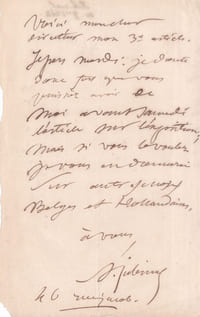 Voici mon cher
directeur mon 3e article.
Je pars mardi. je doute
donc fort que vous
puissiez avoir de
moi avant samedi
l'article sur l'exposition,
mais si vous le voulez
je vous en donnerai
sur
Belges et Hollandais,
à vous
46 rue Jacob.